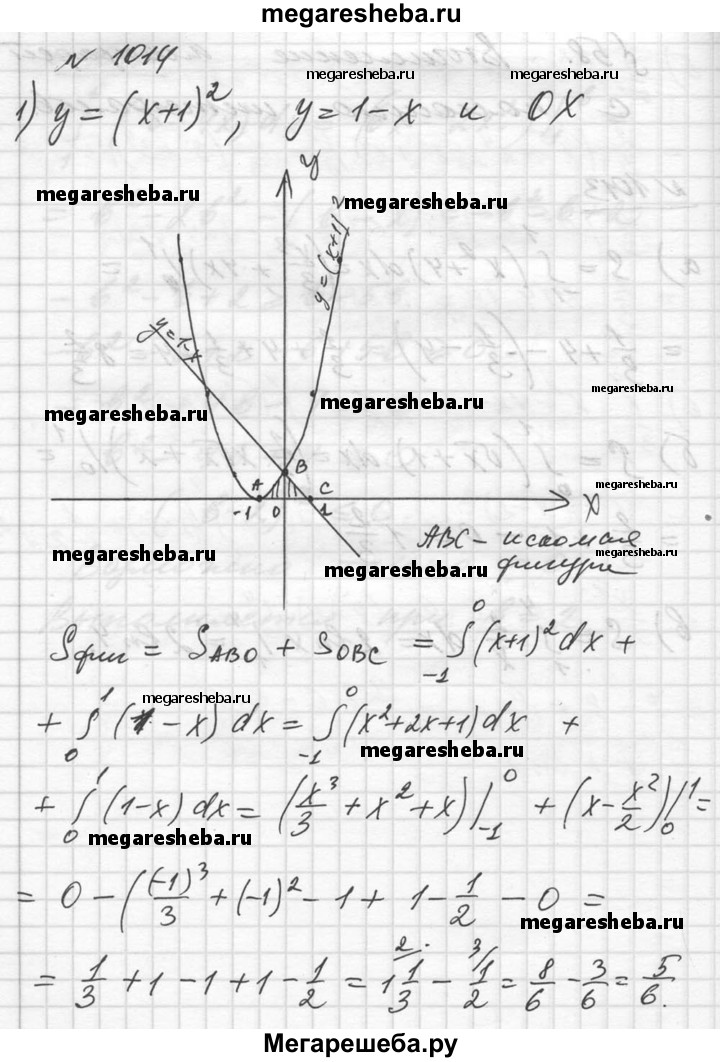 megaresheba.ru
№ 1014
megaresheba.ru megaresheba.ru
1) y = (x+1)², y = 1-x и OX
y
megaresheba.ru megaresheba.ru
y=(x+1)²
y=1-x
megaresheba.ru
megaresheba.ru megaresheba.ru
A B C
-1 0 1 x
megaresheba.ru
ABC - искомая
megaresheba.ru megaresheba.ru megaresheba.ru
фигура
Sфиг = SABO + SOBC = ∫₋₁⁰ (x+1)² dx +
megaresheba.ru
+ ∫₀¹ (1-x) dx = ∫₋₁⁰ (x²+2x+1) dx +
megaresheba.ru
+ ∫₀¹ (1-x) dx = (x³/3 + x² + x)|₋₁⁰ + (x - x²/2)|₀¹ =
megaresheba.ru
= 0 - ((-1)³/3 + (-1)² - 1 + 1 - 1/2 - 0 =
megaresheba.ru
= 1/3 + 1 - 1 + 1 - 1/2 = 1 2/1/3 - 3/1/2 = 8/6 - 3/6 = 5/6.
Мегарешеба.ру